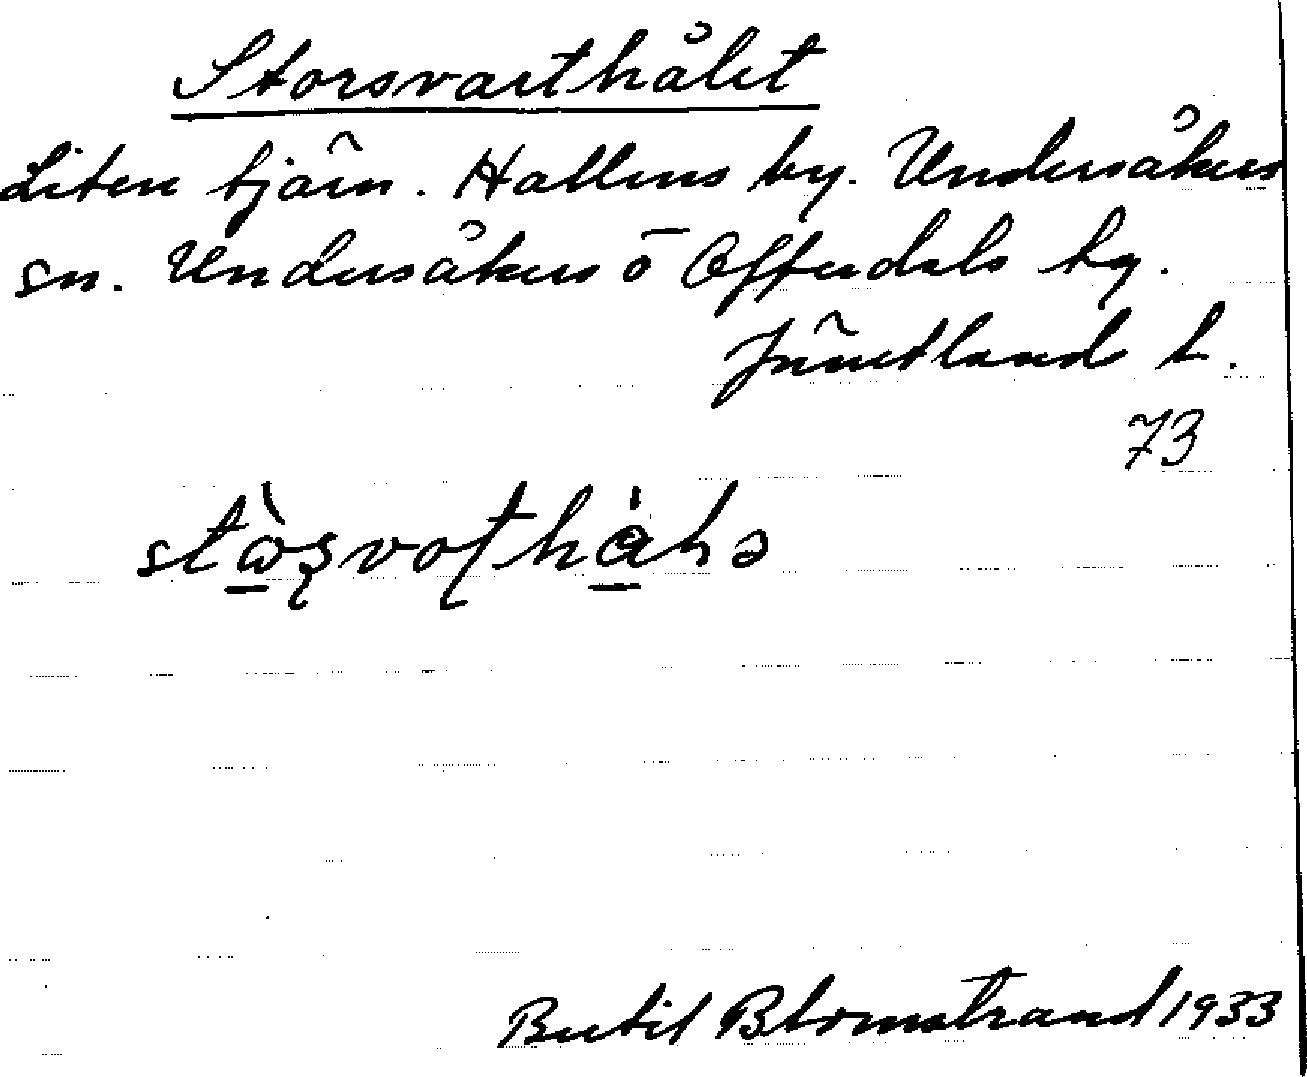 Storsvarthålet
Liten tjärn. Hallens by. Undersåkers
sn. Undersåkers o Offerdals tg.
Jämtland l.
73
Bertil Blomstrand 1933